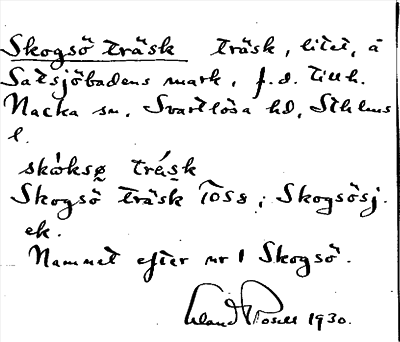 Skogsö träsk träsk, litet, å
Saltsjöbadens mark, f.d. till h.
Nacka sn. Svartlösa hd, Sthlms
l.
skóksø trásk
Skogsö träsk Toss; Skogsösj.
ek.
Namnet efter nr 1 Skogsö.
Erland Rosell 1930.